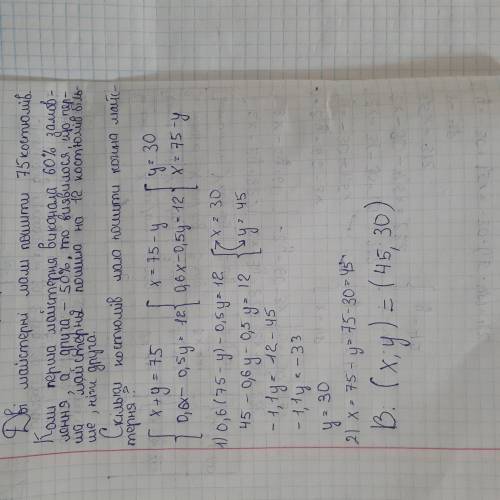 Дві майстерні мали пошити 75 костюмів.
Коли перша майстерня виконала 60% замов-
лення, а друга - 50%, то виявилося, що пер-
ша майстерня пошила на 12 костюмів біль-
ше, ніж друга.
Скільки костюмів мала пошити кожна майс-
терня?
{ x+y=75 { x=75-y { y=30
{ 0,6x-0,5y=12 { 0,6x-0,5y=12 { x=75-y
1) 0,6(75-y)-0,5y=12 { x=30
45-0,6y-0,5y=12 { y=45
-1,1y=12-45
-1,1y=-33
y=30
2) x=75-y=75-30=45
В. (x;y)=(45;30)